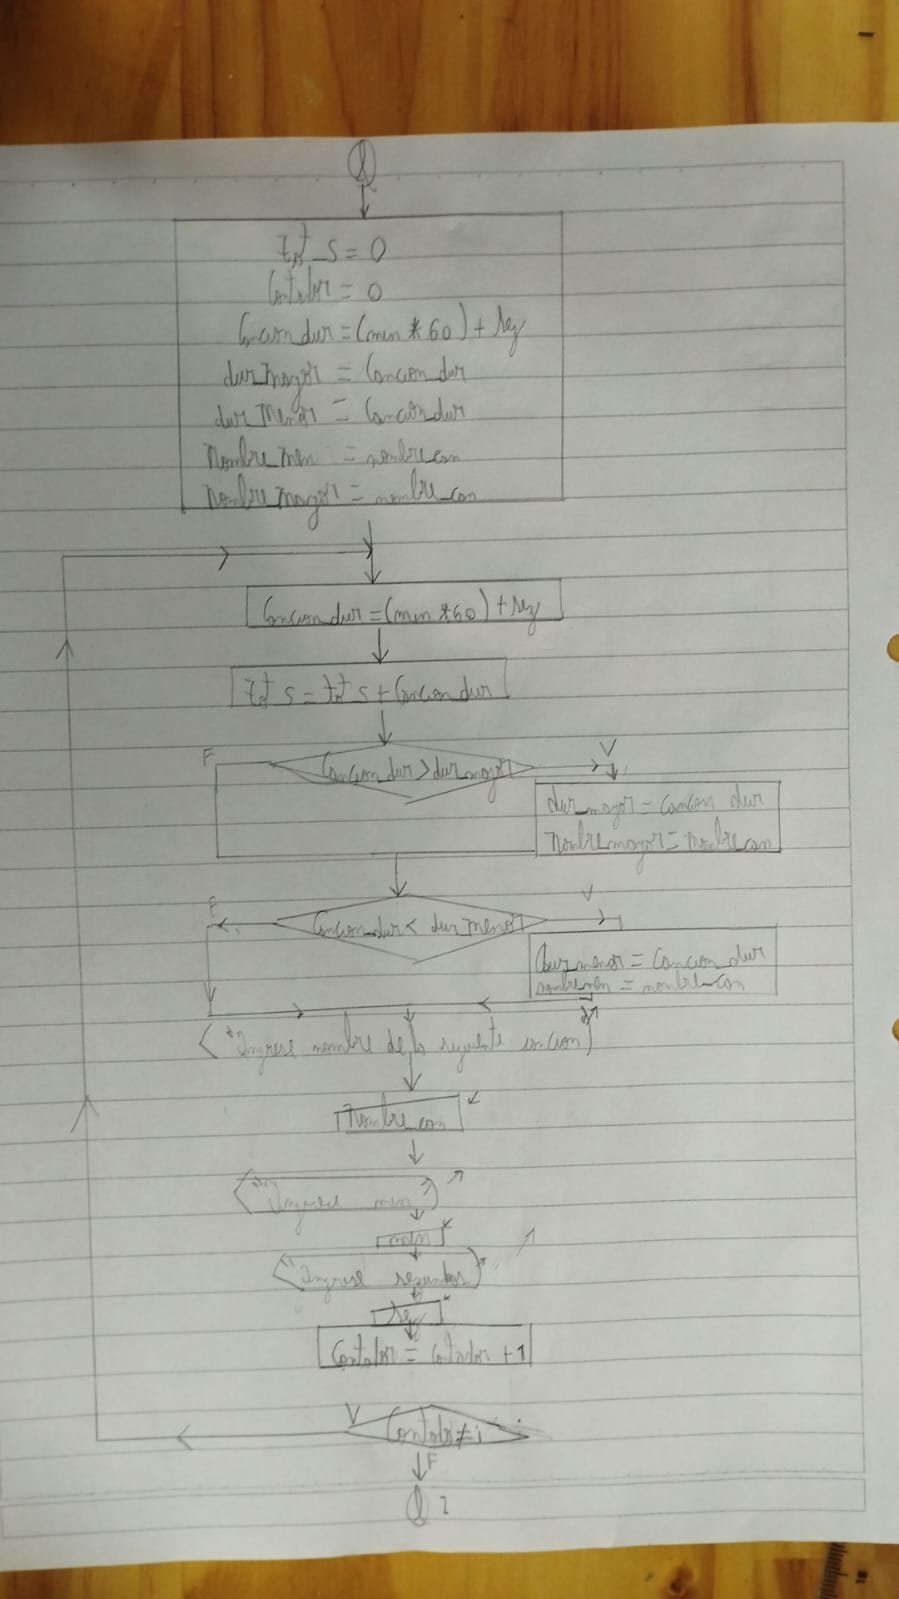 1
tot_s = 0
Contador = 0
Cancion_dur = (min * 60) + seg
dur_mayor = Cancion_dur
dur_menor = Cancion_dur
nombre_men = nombre_can
nombre_mayor = nombre_can
Cancion_dur = (min * 60) + seg
tot_s = tot_s + Cancion_dur
F
Cancion_dur > dur_mayor
V
dur_mayor = cancion_dur
nombre_mayor = nombre_can
F
Cancion_dur < dur_menor
V
dur_menor = Cancion_dur
nombre_men = nombre_can
"Ingrese nombre de la siguiente cancion"
nombre_can
"Ingrese min"
min
"Ingrese segundos"
seg
Contador = contador + 1
V
Contador ≠ i
F
2